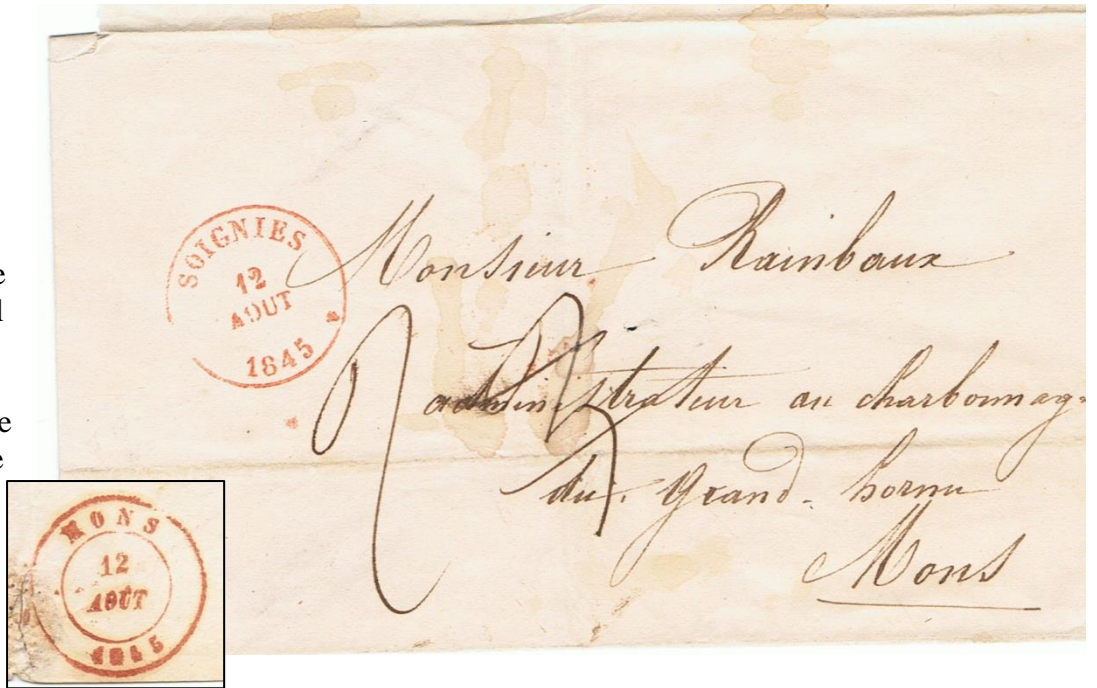 SOIGNIES
12
AOUT
1845
Monsieur Rainbaux
administrateur au charbonnag
du grand hornu
Mons
e
l
e
e
MONS
12
AOÛT
1845